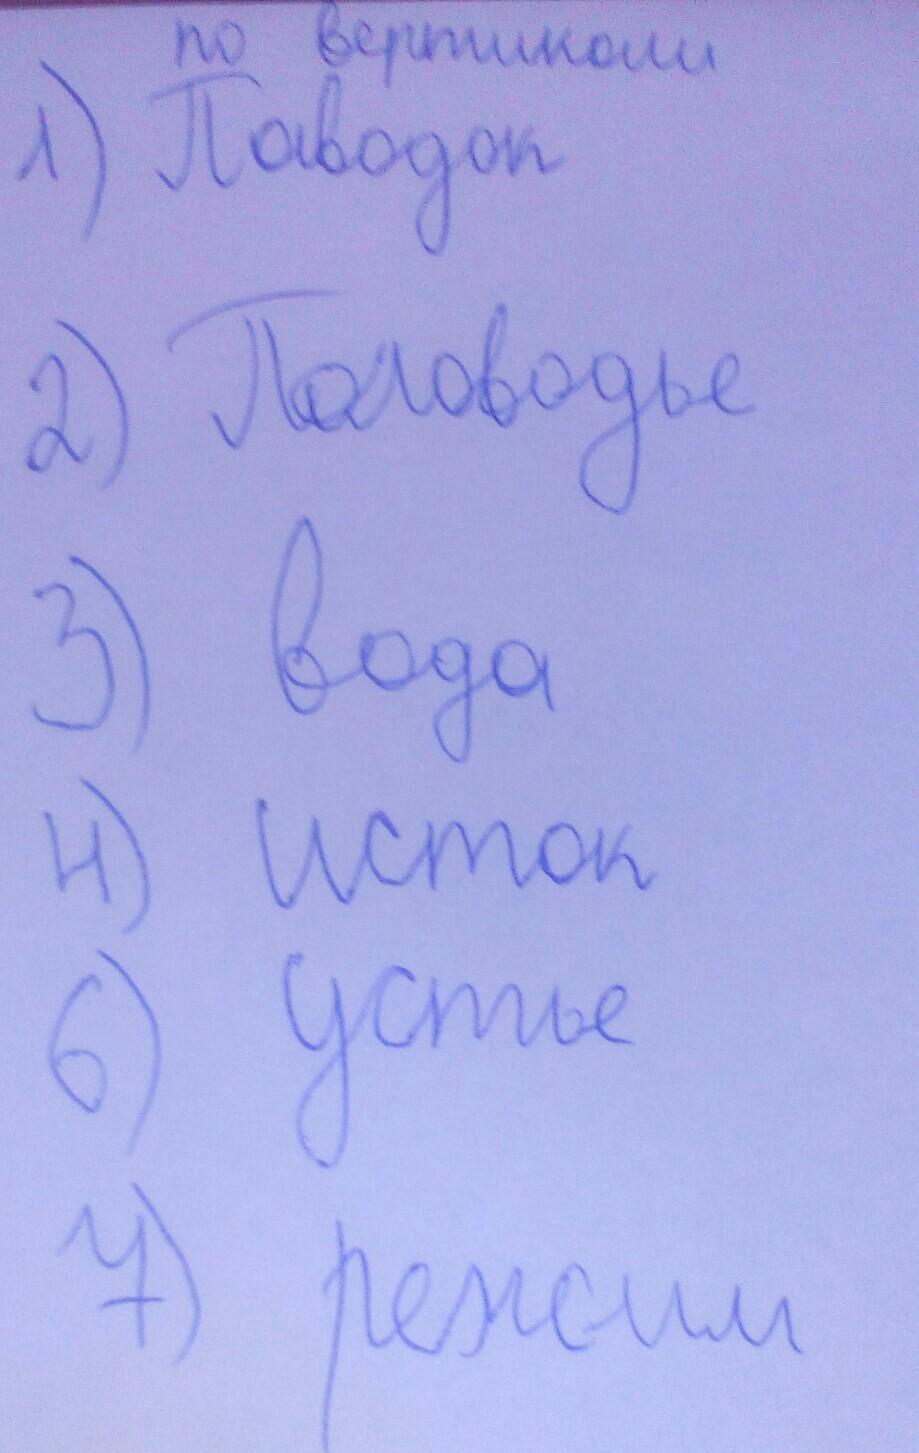 по вертикали
1) Паводок
2) Половодье
3) вода
4) исток
6) устье
7) режим